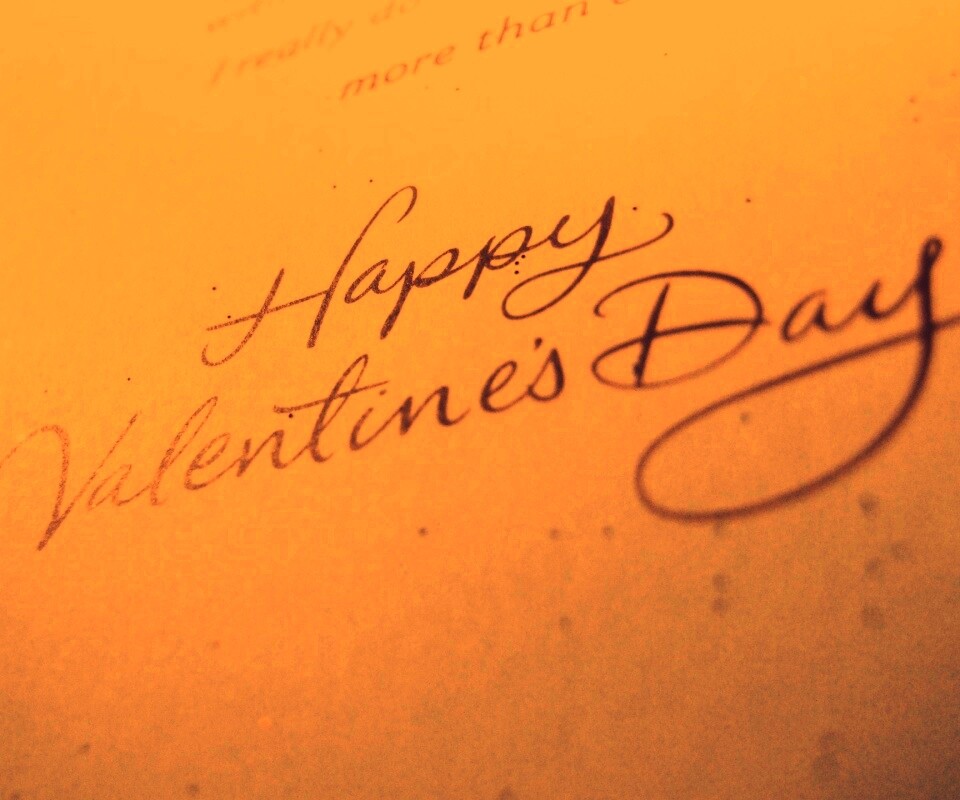 I really do
more than
Happy
Valentine's Day